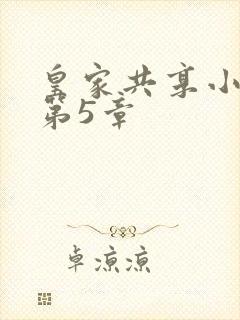 皇家共享小
第5章
卓凉凉